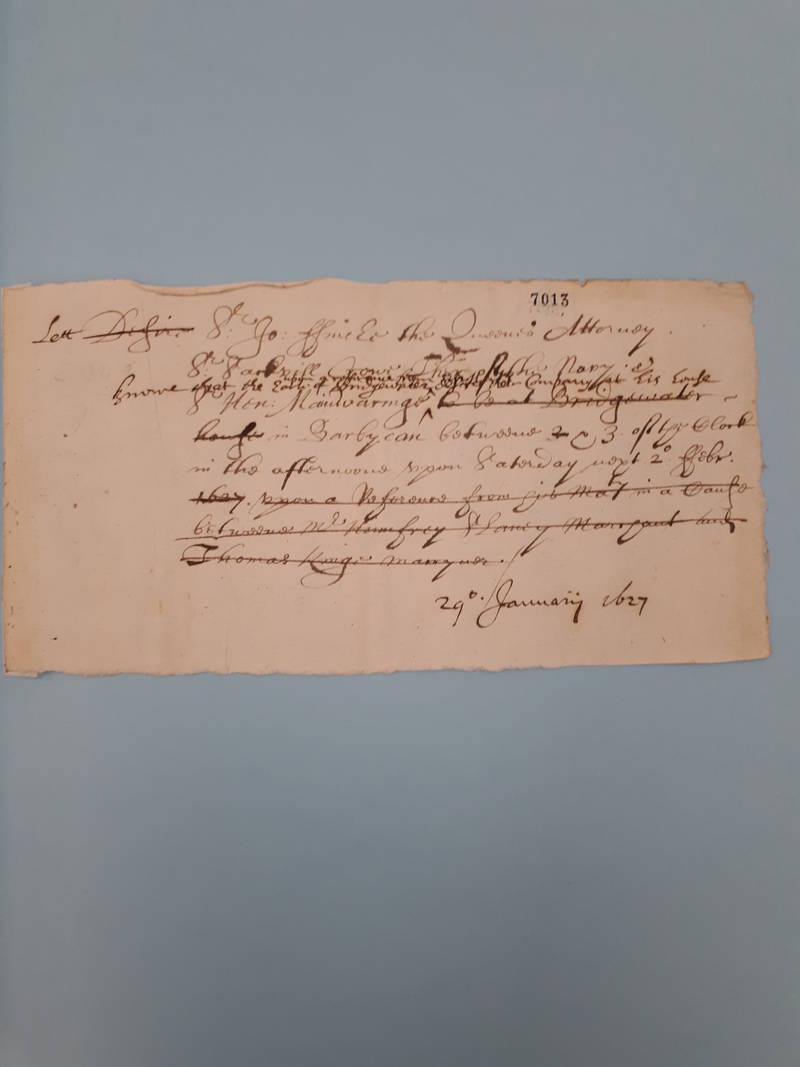 7013
Lett Desire Sr. Jo: Ffincke the Queenes Attorney.
Sr. Sackvill Crowe
knowe that the Earle of Bridgewater desires their Company at his house
Sr Hen: Mainwaringe ^ to be at Bridgewater
house in Barbycan betweene 2 & 3 of the Clock
in the afternoone upon Saterday next 2o Ffebr.
1627. upon a Reference from his Maty in a Cause
betweene Mr Humfrey Slaney Marchant and
Thomas Kinge marryner.
29o. January 1627